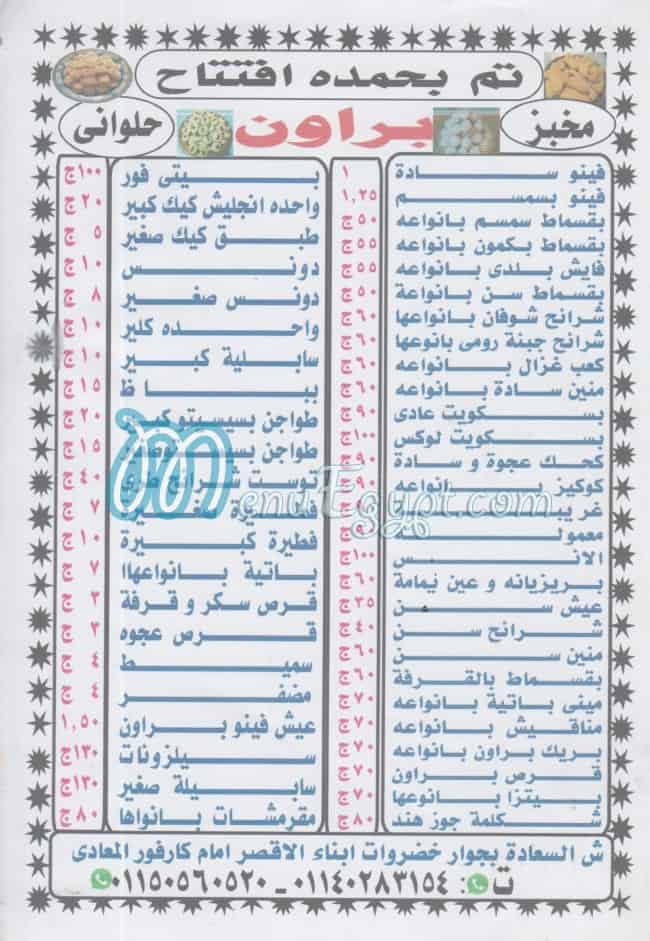 تم بحمده افتتاح
مخبز
براون
حلوانى
فينو سادة ١
فينو بسمسم ١,٢٥
بقسماط سمسم بانواعه ٥٠ج
بقسماط بكمون بانواعه ٥٥ج
فايش بلدى بانواعه ٥٥ج
بقسماط سن بانواعة ٥٠ج
شرائح شوفان بانواعها ٦٠ج
شرائح جبنة رومى بانوعها ٦٠ج
كعب غزال بانواعه ٦٠ج
منين سادة بانواعه ٦٠ج
بسكويت عادى ٩٠ج
بسكويت لوكس ١٠٠ج
كحك عجوة و سادة ٩٠ج
كوكيز بانواعه ٩٠ج
معمول ٩٠ج
الانس ١٠٠ج
بريزيانه و عين نيمامة ٦٠ج
عيش سن ٣٥ج
شرائح سن ٤٠ج
منين سن ٦٠ج
بقسماط بالقرفة ٦٠ج
مينى باتية بانواعه ٧٠ج
مناقيش بانواعه ٧٠ج
بريك براون بانواعه ٧٠ج
قرص براون ٧٠ج
بيتزا بانوعها ٧٠ج
شكلمة جوز هند ٨٠ج
بيتى فور ١٠٠ج
واحده انجليش كيك كبير ٢٠ ج
طبق كيك صغير ٥ ج
دونس ١٠ ج
دونس صغير ٨ ج
واحده كلير ١٠ ج
سابلية كبير ١٠ ج
بباظ ١٥ ج
طواجن بسيسيتو ٢٠ ج
طواجن ١٥ ج
توست شرائح طرى ٤٠ ج
فطيرة ٧ ج
فطيرة كبيرة ١٠ ج
باتية بانواعهاا ٧ ج
قرص سكر و قرفة ٣ ج
قرص عجوه ٣ ج
سميط ٤ ج
مضفر ٤ ج
عيش فينو براون ١,٥٠
سيلزونات ١٣٠ج
سابيلة صغير ١٣٠ج
مقرمشات بانواها ٨٠ج
MenuEgypt.com
ش السعادة بجوار خضروات ابناء الاقصر امام كارفور المعادى
ت : ٠١١٤٠٢٨٣١٥٤ - ٠١١٥٠٥٦٠٥٢٠